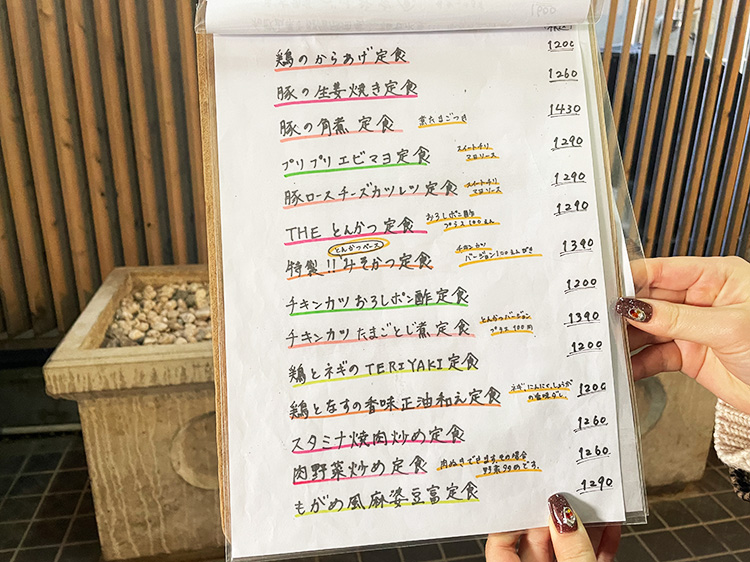 鶏のからあげ定食 1200
豚の生姜焼き定食 1260
豚の角煮定食 煮たまごつき 1430
プリプリエビマヨ定食 スイートチリマヨソース 1290
豚ロースチーズカツレツ定食 スイートチリマヨソース 1290
THE とんかつ定食 おろしポン酢プラス100えん 1290
とんかつベース
特製!!みそかつ定食 チキンカツバージョン100えんびき 1390
チキンカツおろしポン酢定食 1200
チキンカツたまごとじ煮定食 とんかつバージョンプラス100円 1390
鶏とネギのTERIYAKI定食 1200
鶏となすの香味正油和え定食 ネギ、にんにく、しょうがの香味ダレ。 1200
スタミナ焼肉炒め定食 1260
肉野菜炒め定食 肉ぬきできます。その場合野菜炒めです。 1260
もがめ風麻婆豆富定食 1290